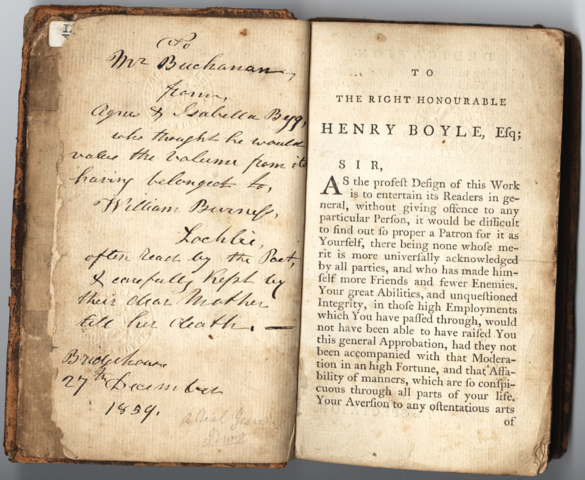 To
Mr Buchanan,
from,
Agnes & Isabella Begg,
who thought he would
value the volumn from its
having belonged to,
William Burness,
Lochlie,
often read by the Poet,
& carefully kept by
their dear Mother
till her death. —
Bridgehouse
27th December
1859.
TO
THE RIGHT HONOURABLE
HENRY BOYLE, Eſq;
SIR,
AS the profeſt Deſign of this Work
is to entertain its Readers in ge-
neral, without giving offence to any
particular Perſon, it would be difficult
to find out ſo proper a Patron for it as
Yourſelf, there being none whoſe me-
rit is more univerſally acknowledged
by all parties, and who has made him-
ſelf more Friends and fewer Enemies.
Your great Abilities, and unqueſtioned
Integrity, in thoſe high Employments
which You have paſſed through, would
not have been able to have raiſed You
this general Approbation, had they not
been accompanied with that Modera-
tion in an high Fortune, and that Affa-
bility of manners, which are ſo conſpi-
cuous through all parts of your life.
Your Averſion to any oſtentatious arts
of